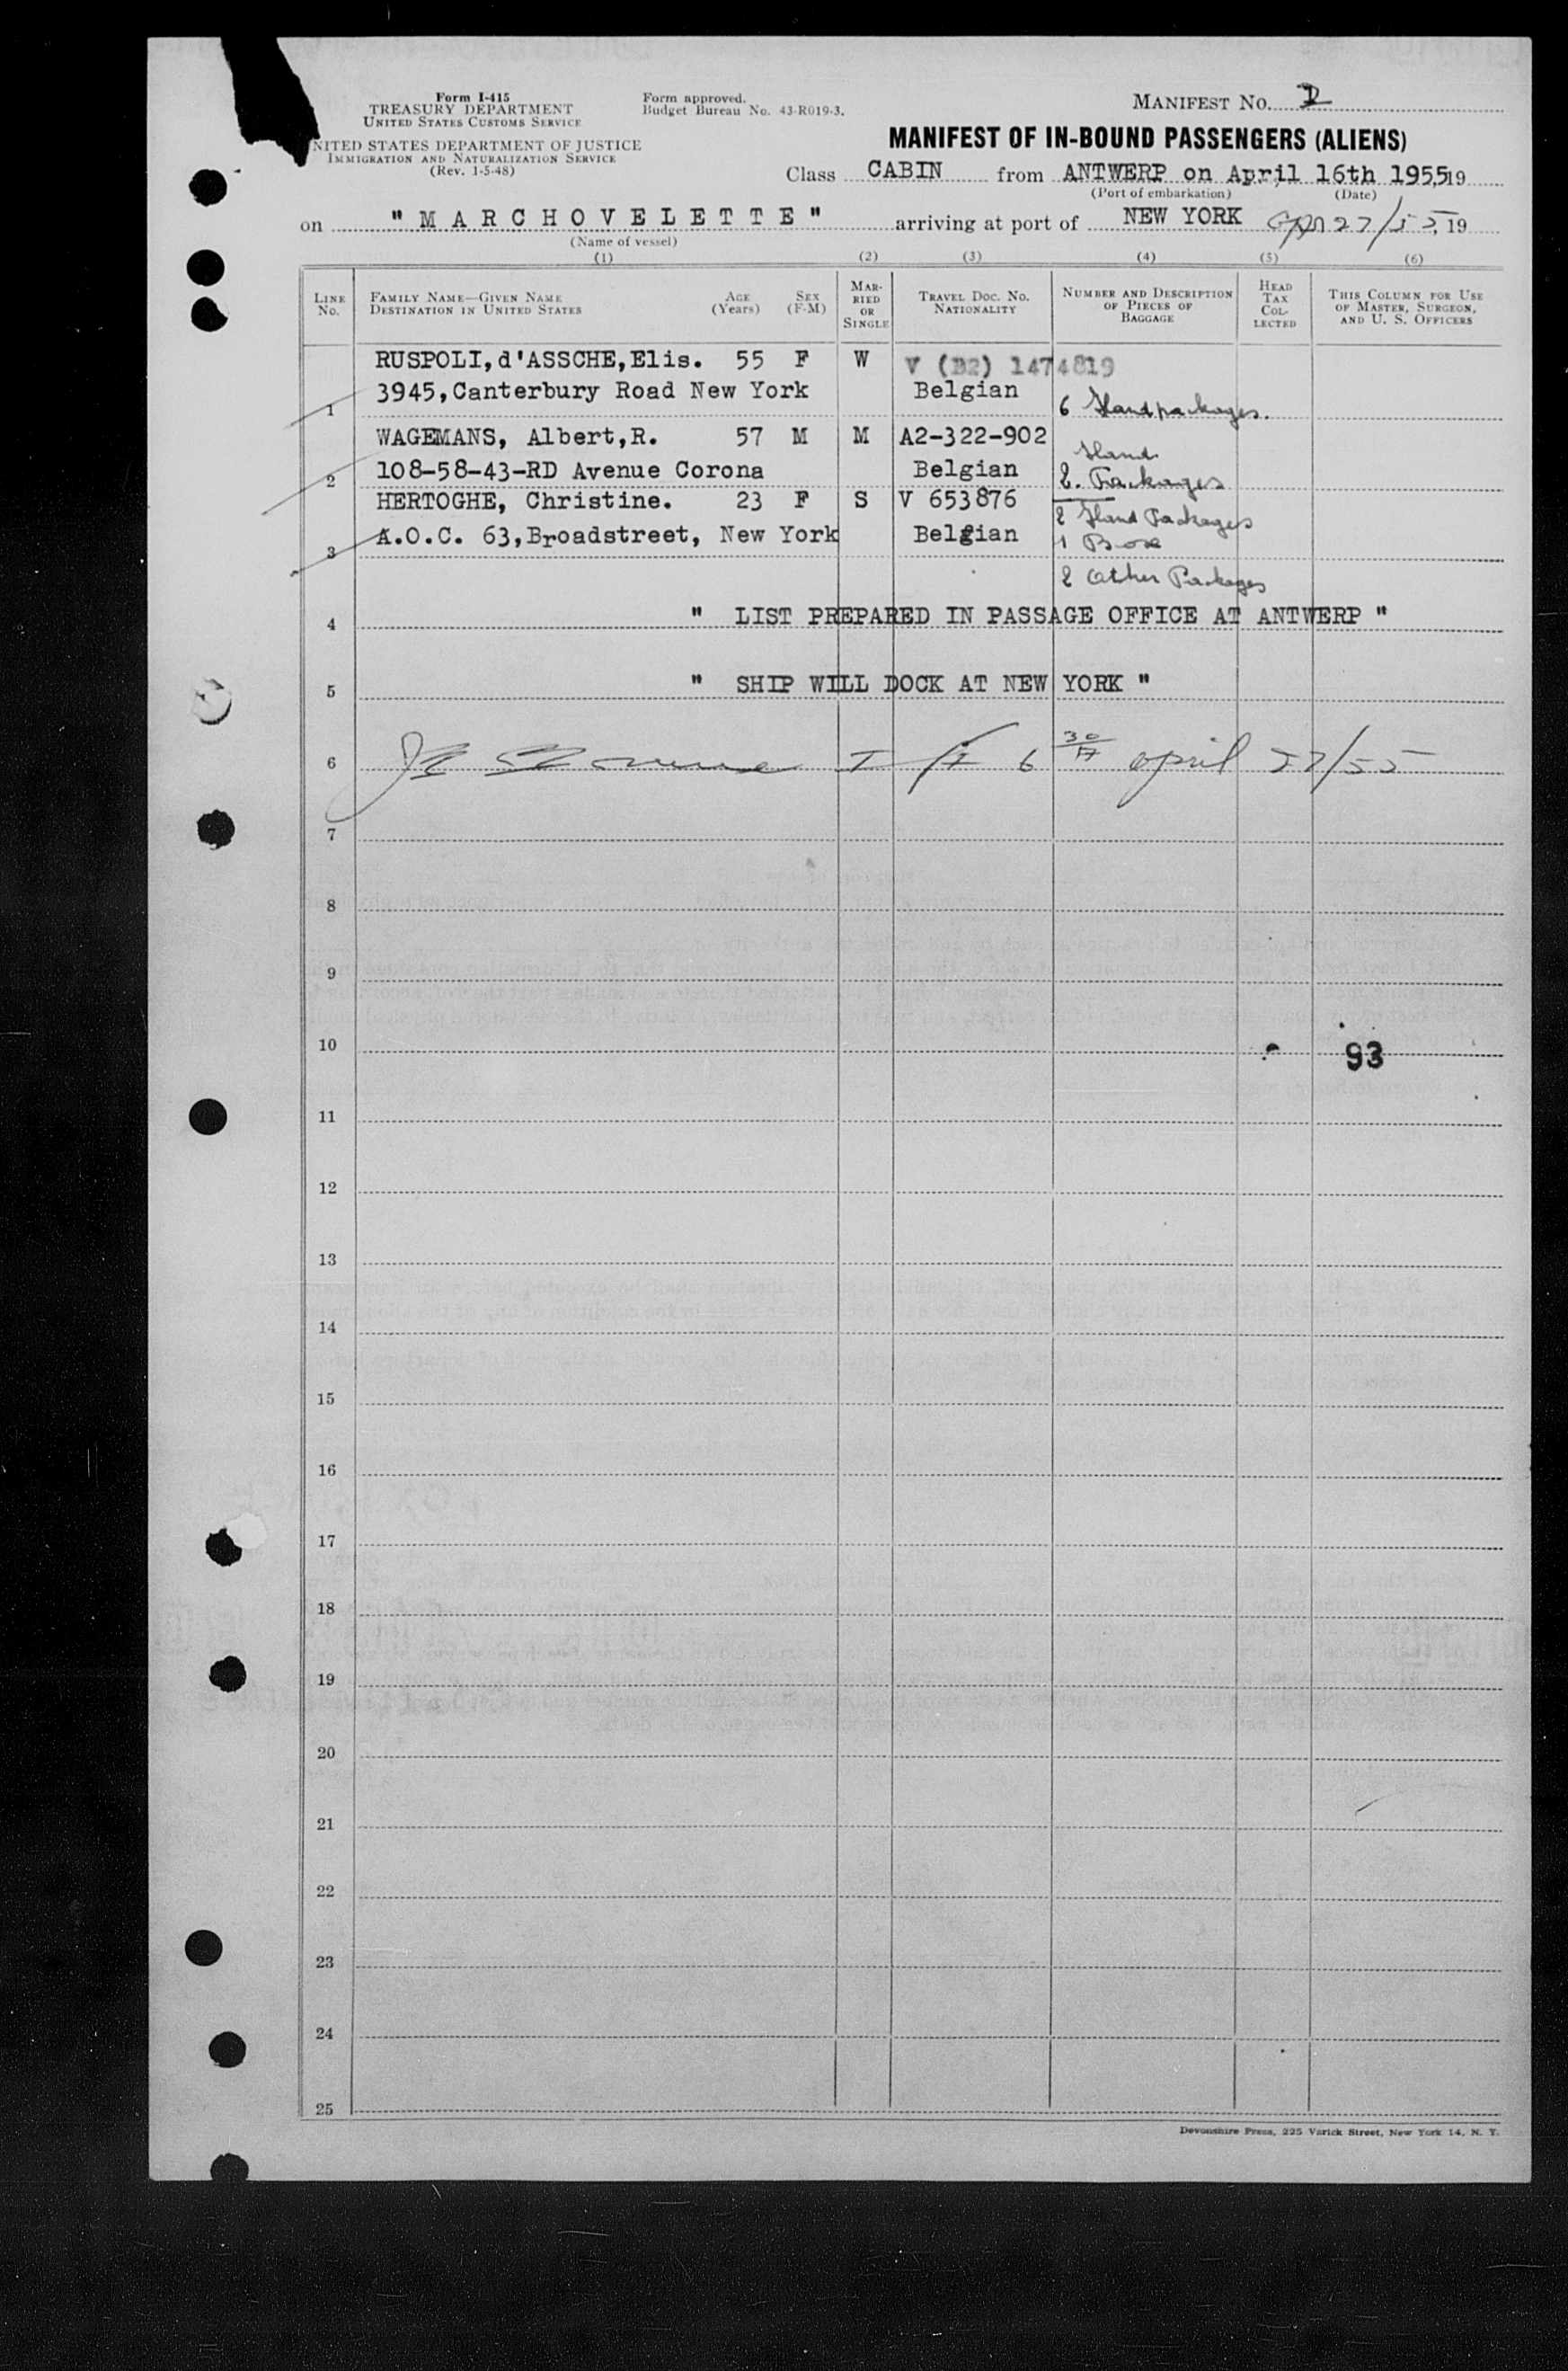 Form I-415
TREASURY DEPARTMENT
UNITED STATES CUSTOMS SERVICE
NITED STATES DEPARTMENT OF JUSTICE
IMMIGRATION AND NATURALIZATION SERVICE
(Rev. 1-5-48)
Form approved.
Budget Bureau No. 43-R019-3.
MANIFEST NO.
MANIFEST OF IN-BOUND PASSENGERS (ALIENS)
Class CABIN from ANTWERP on April 16th 1955, 19
(Port of embarkation) (Date)
on " M A R C H O V E L E T T E " arriving at port of NEW YORK 27/55, 19
(Name of vessel)
(1) (2) (3) (4) (5) (6)
LINE No. FAMILY NAME—GIVEN NAME DESTINATION IN UNITED STATES AGE (Years) SEX (F-M) MARRIED OR SINGLE TRAVEL DOC. NO. NATIONALITY NUMBER AND DESCRIPTION OF PIECES OF BAGGAGE HEAD TAX COLLECTED THIS COLUMN FOR USE OF MASTER, SURGEON, AND U. S. OFFICERS
RUSPOLI,d'ASSCHE,Elis. 55 F W V (B2) 1474819
1 3945,Canterbury Road New York Belgian 6 Handpackages.
WAGEMANS, Albert,R. 57 M M A2-322-902 Hand
2 108-58-43-RD Avenue Corona Belgian 2. Packages
HERTOGHE, Christine. 23 F S V 653876 2 Hand Packages
3 A.O.C. 63,Broadstreet, New York Belgian 1 Box
2 other Packages
4 " LIST PREPARED IN PASSAGE OFFICE AT ANTWERP "
5 " SHIP WILL DOCK AT NEW YORK "
6 6 30 april 27/55
7
8
9
10 93
11
12
13
14
15
16
17
18
19
20
21
22
23
24
25
Devonshire Press, 225 Varick Street, New York 14, N. Y.